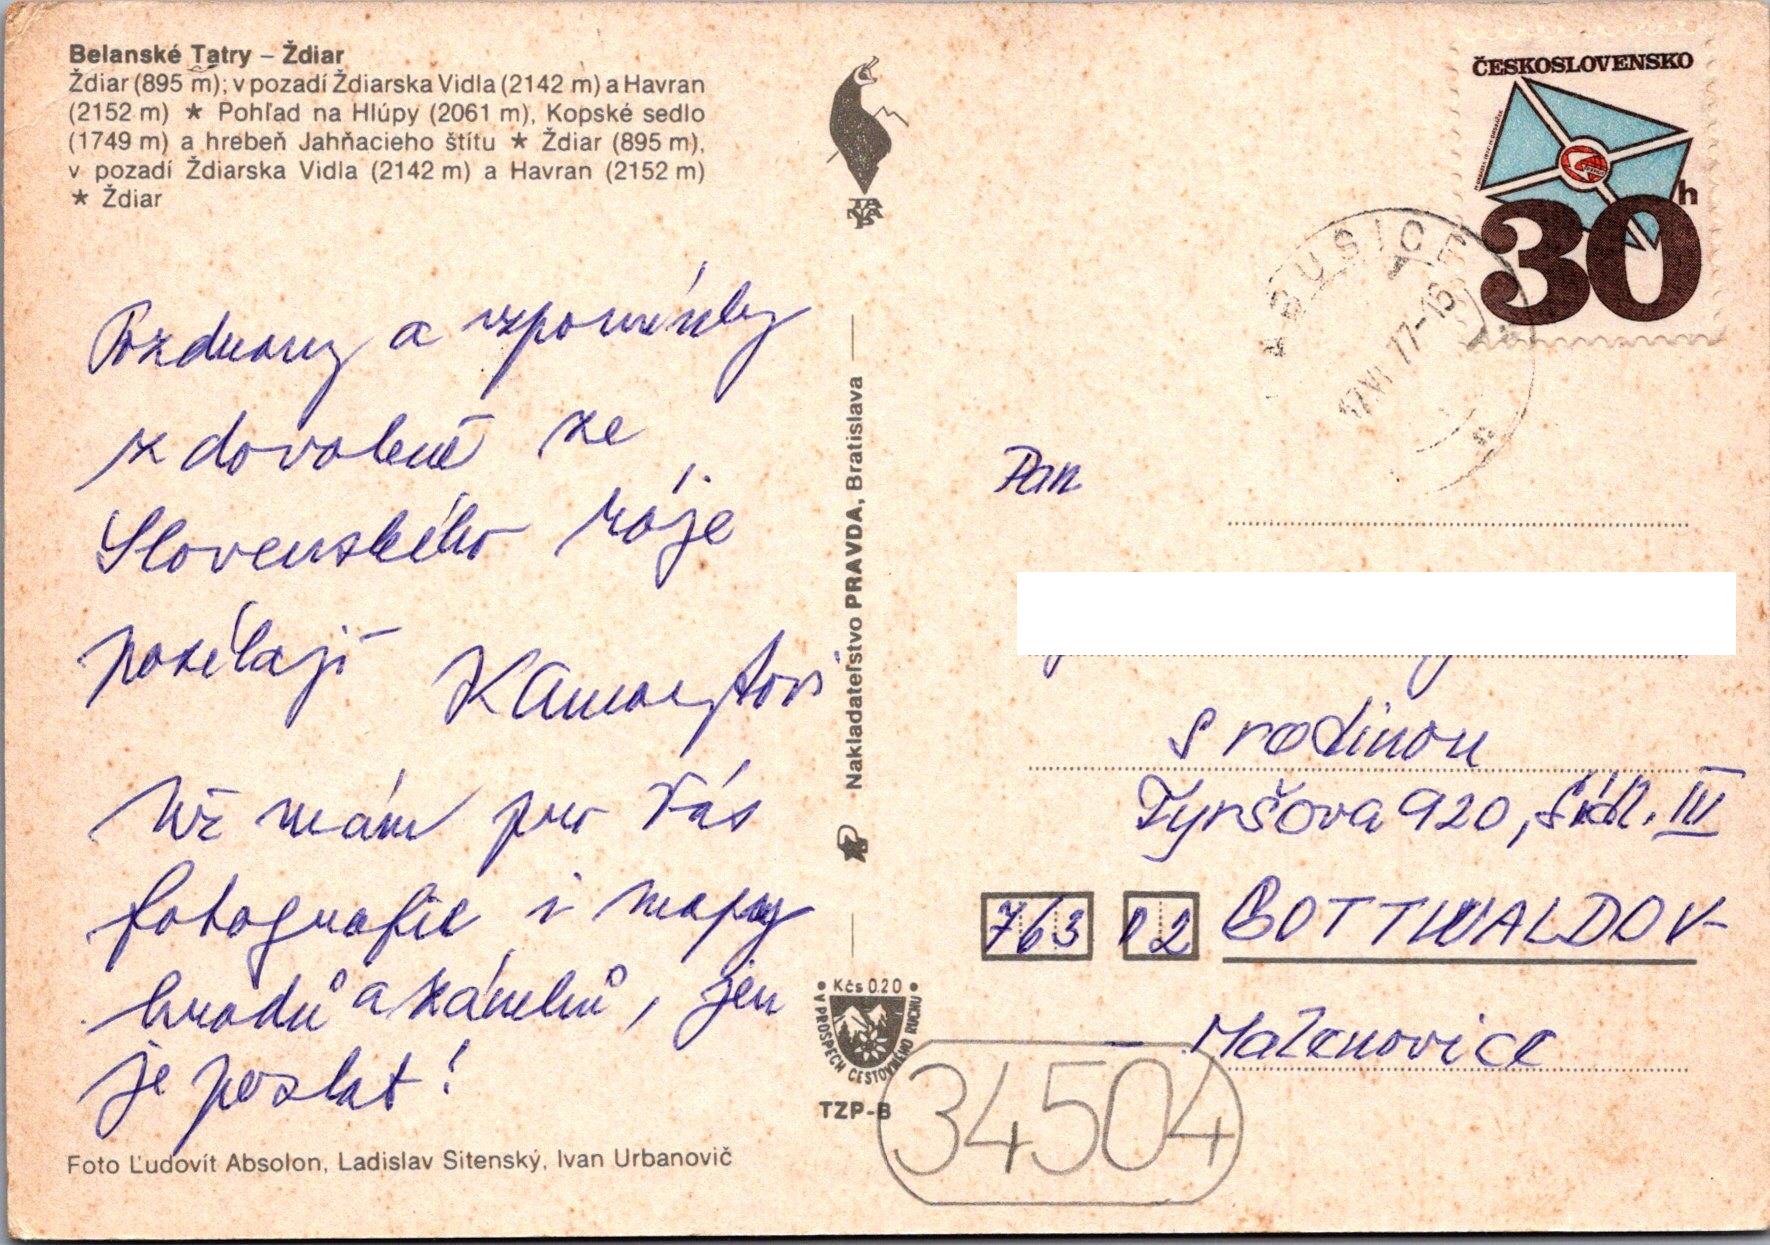 Belanské Tatry – Ždiar
Ždiar (895 m); v pozadí Ždiarska Vidla (2142 m) a Havran
(2152 m) ★ Pohľad na Hlúpy (2061 m), Kopské sedlo
(1749 m) a hrebeň Jahňacieho štítu ★ Ždiar (895 m),
v pozadí Ždiarska Vidla (2142 m) a Havran (2152 m)
★ Ždiar
Pozdravy a vzpomínky
z dovolené ze
Slovenského ráje
posílají
Už mám pro Vás
fotografie i mapy
hradů a zámků, jen
je poslat!
Foto Ľudovít Absolon, Ladislav Sitenský, Ivan Urbanovič
Nakladateľstvo PRAVDA, Bratislava
Kčs 0.20
V PROSPECH CESTOVNÉHO RUCHU
TZP-B
ČESKOSLOVENSKO
30 h
17.VI 77-16
Pan
s rodinou
Tyršova 920, sídl. III
763 02 GOTTWALDOV-
- Malenovice
34504